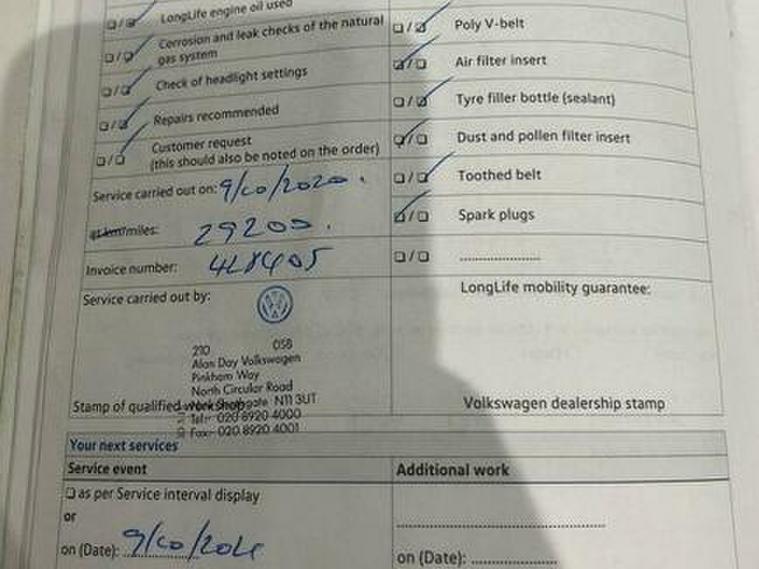 LongLife engine oil used
Corrosion and leak checks of the natural
gas system
Check of headlight settings
Repairs recommended
Customer request
(this should also be noted on the order)
Service carried out on: 9/10/2020.
at km/miles: 29200.
Invoice number:
Service carried out by:
210 058
Alan Day Volkswagen
Pinkham Way
North Circular Road
New Southgate N11 3UT
Tel:- 020 8920 4000
Fax:- 020 8920 4001
Stamp of qualified workshop
Poly V-belt
Air filter insert
Tyre filler bottle (sealant)
Dust and pollen filter insert
Toothed belt
Spark plugs
LongLife mobility guarantee:
Volkswagen dealership stamp
Your next services
Service event
as per Service interval display
or
on (Date): 9/10/2021
Additional work
on (Date):